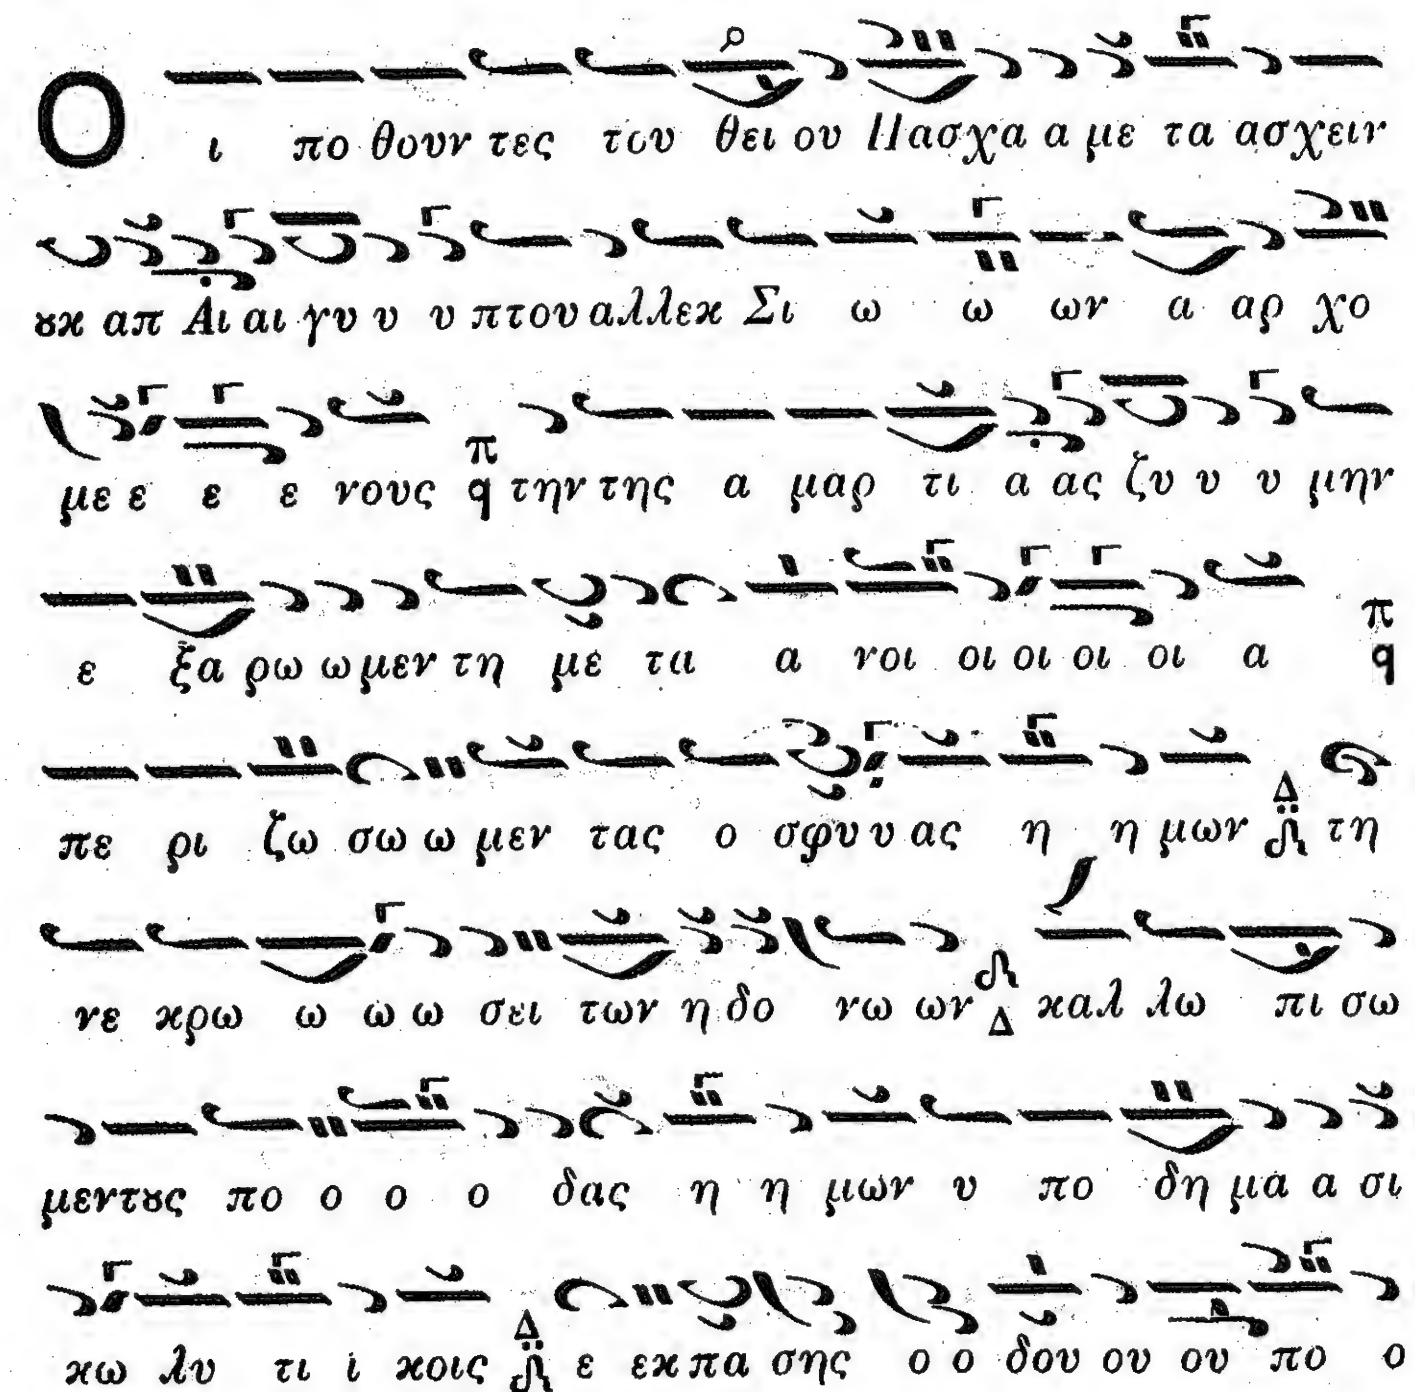 Ο ι πο θουν τες του θει ου Πασχα α με τα ασχειν
ȣκ απ Αι αι γυ υ υ πτου αλλεκ Σι ω ω ων α αρ χο
με ε ε ε νους π q την της α μαρ τι α ας ζυ υ υ μην
ε ξα ρω ω μεν τη με τα α νοι οι οι οι οι α π q
πε ρι ζω σω ω μεν τας ο σφυ υ ας η η μων Δ τη
νε κρω ω ω ω σει των η δο νω ων Δ καλ λω πι σω
μεν τȣς πο ο ο ο δας η η μων υ πο δη μα α σι
κω λυ τι ι κοις Δ ε εκ πα σης ο ο δου ου ου πο ο